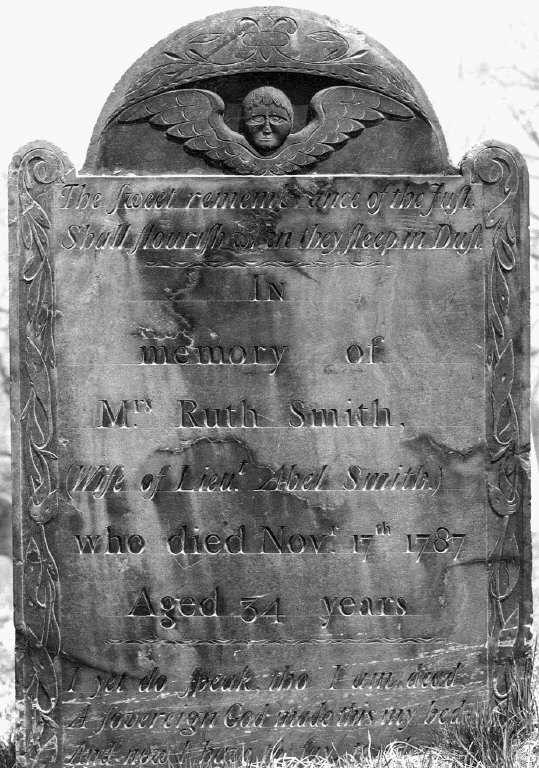 The ſweet remembrance of the Juſt,
Shall flouriſh when they ſleep in Duſt.
In
memory of
Mrs Ruth Smith,
(Wife of Lieut Abel Smith.)
who died Novr 17th 1787
Aged 34 years
I yet do ſpeak tho I am dead
A ſovereign God made this my bed
And now I have